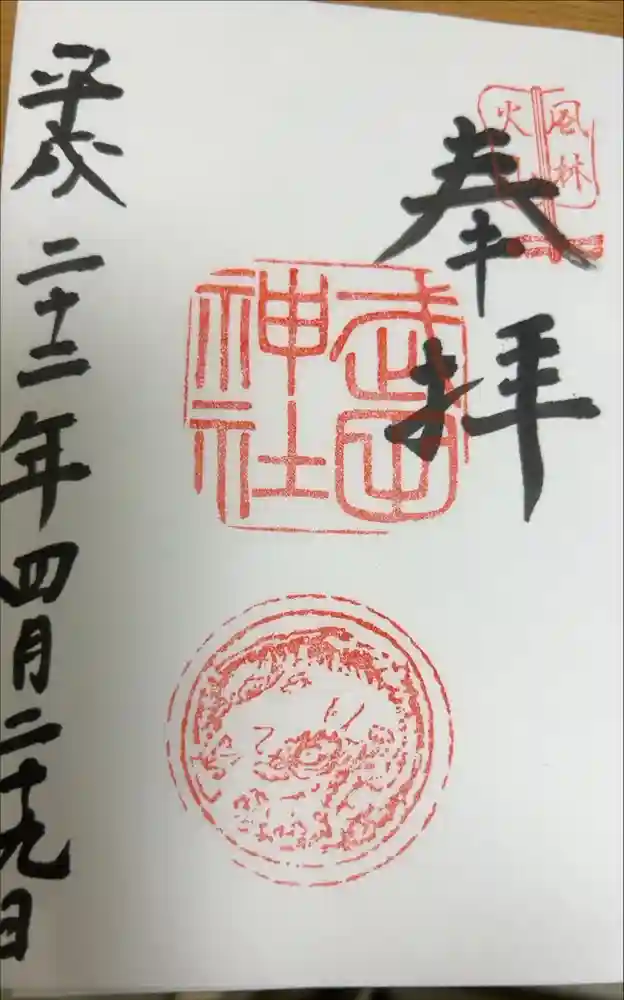 奉拝
風林
火山
武田
神社
平成二十二年四月二十九日